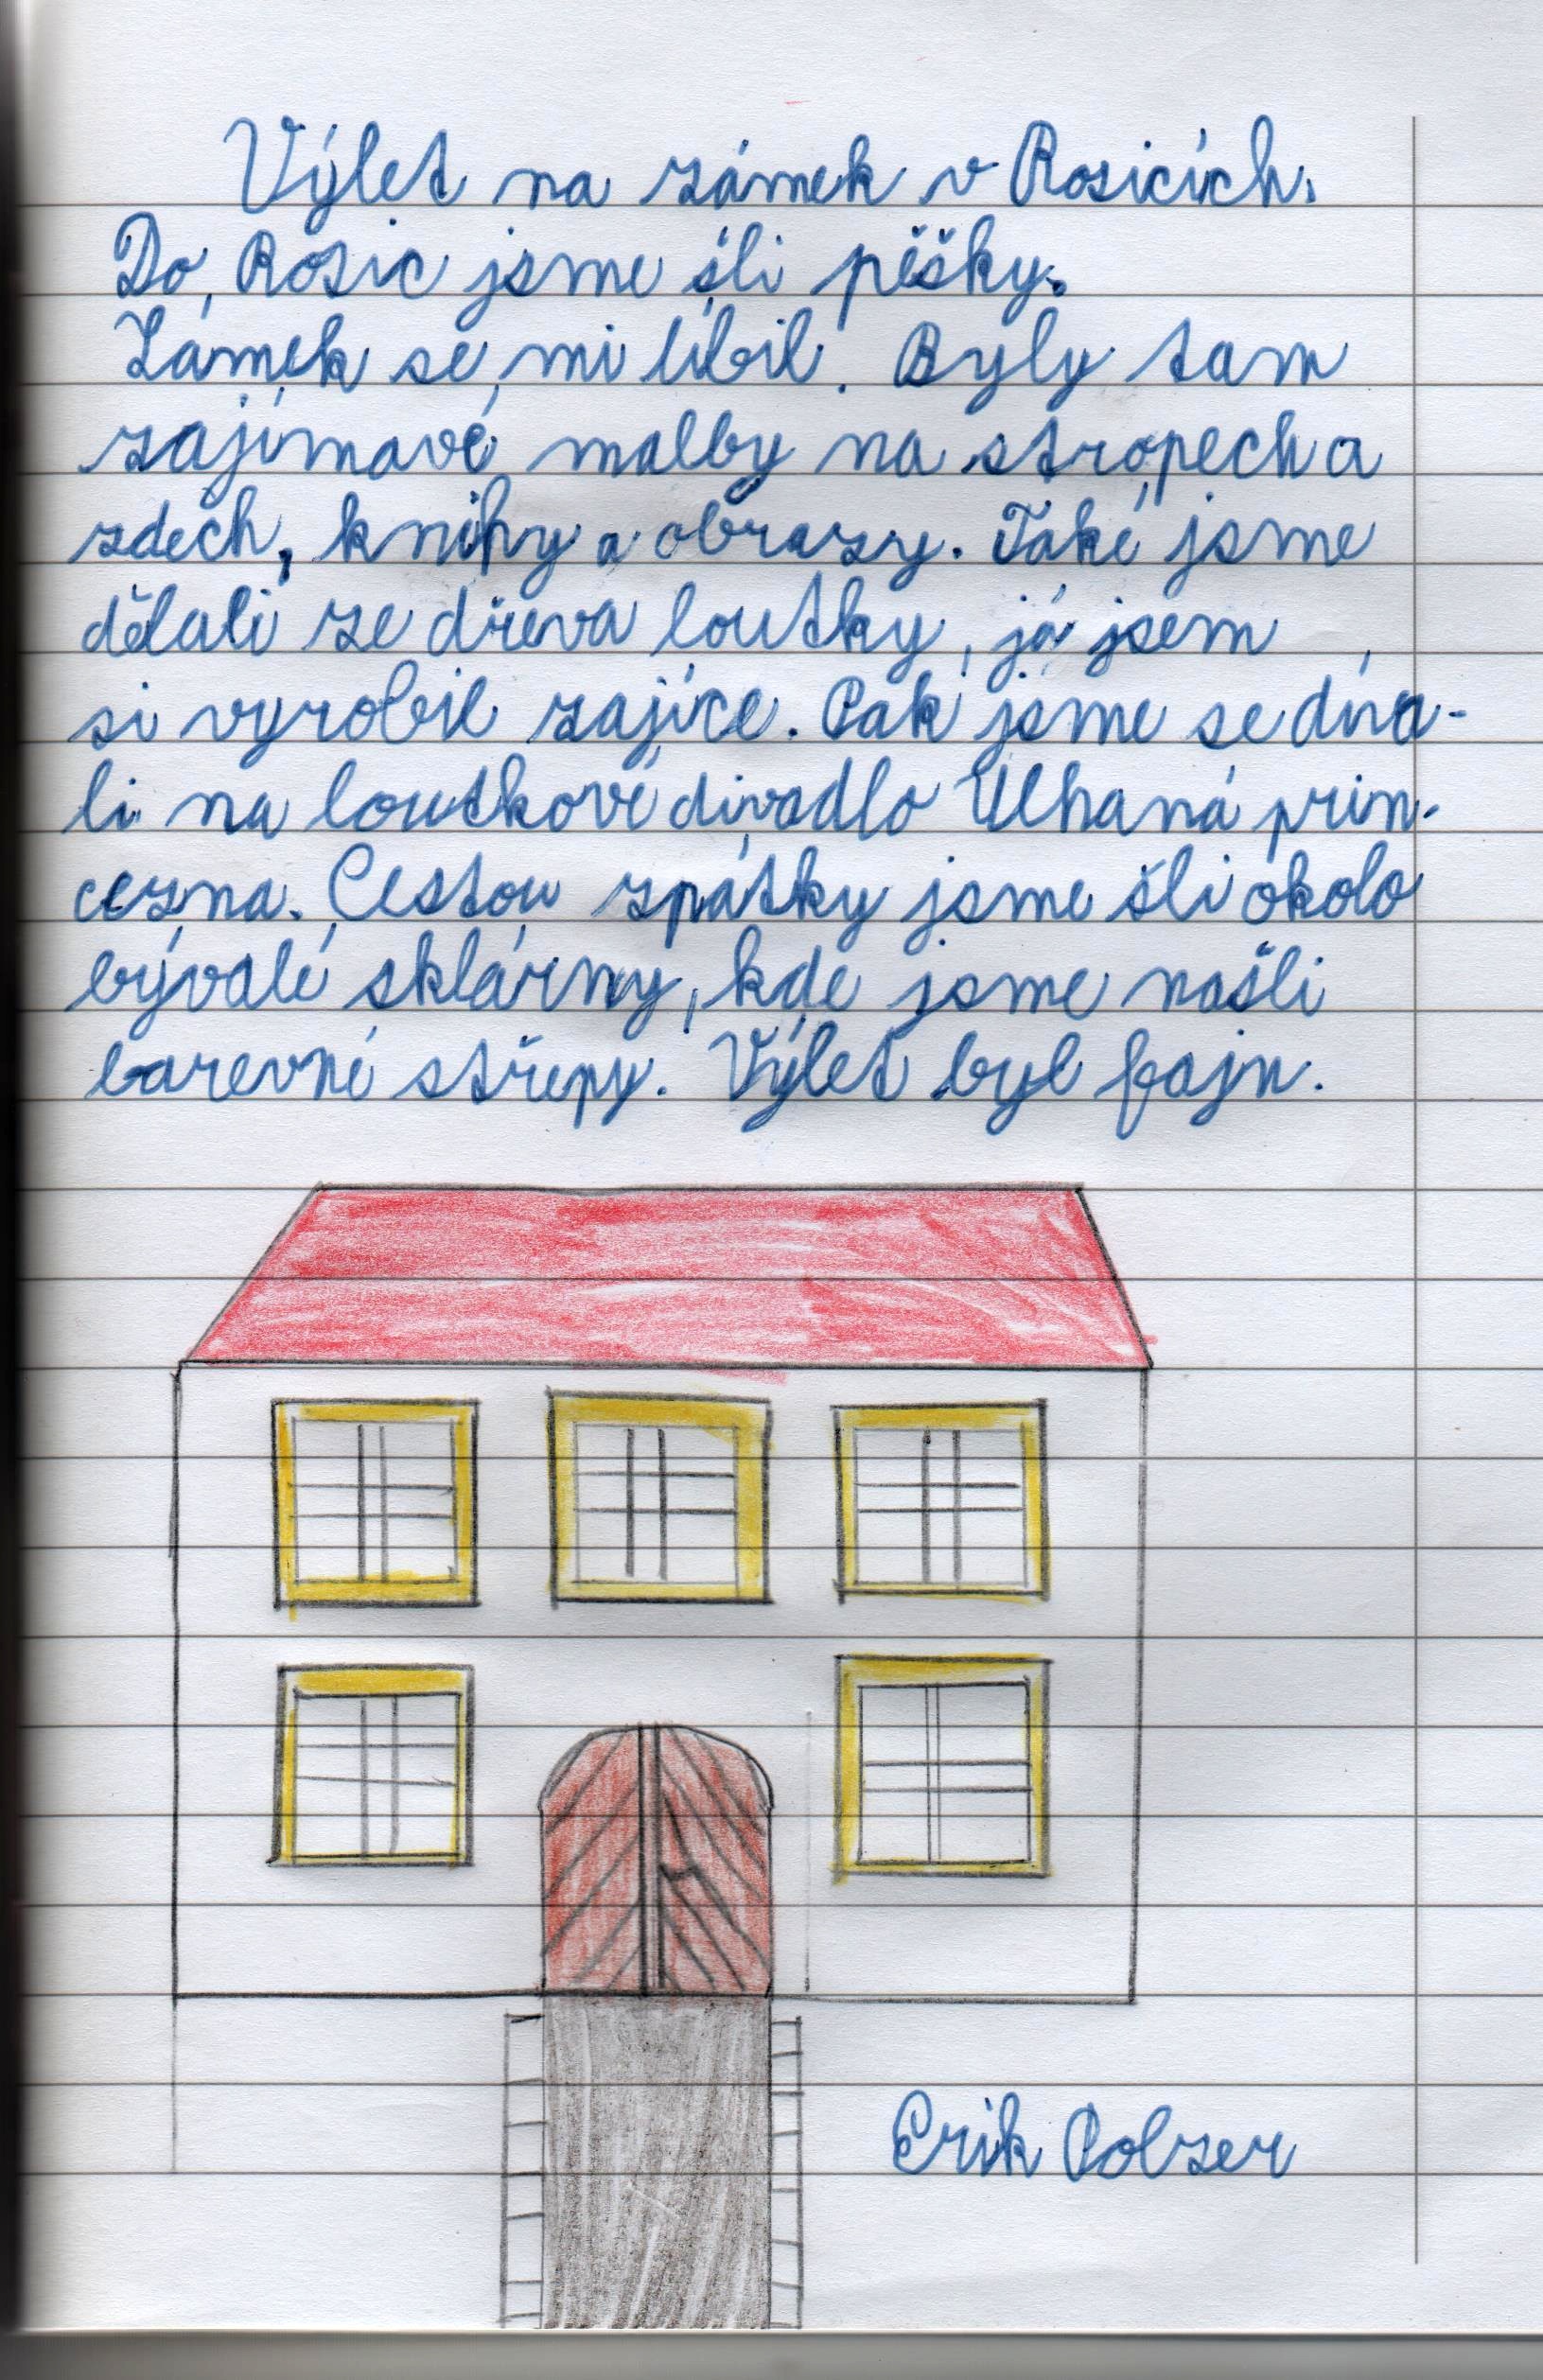 Výlet na zámek v Rosicích.
Do Rosic jsme šli pěšky.
Zámek se mi líbil. Byly tam
zajímavé malby na stropech a
zdech, knihy a obrazy. Také jsme
dělali ze dřeva loutky, já jsem
si vyrobil zajíce. Pak jsme se díva-
li na loutkové divadlo Ulhaná prin-
cezna. Cestou zpátky jsme šli okolo
bývalé sklárny, kde jsme našli
barevné střepy. Výlet byl fajn.
Erik Polzer